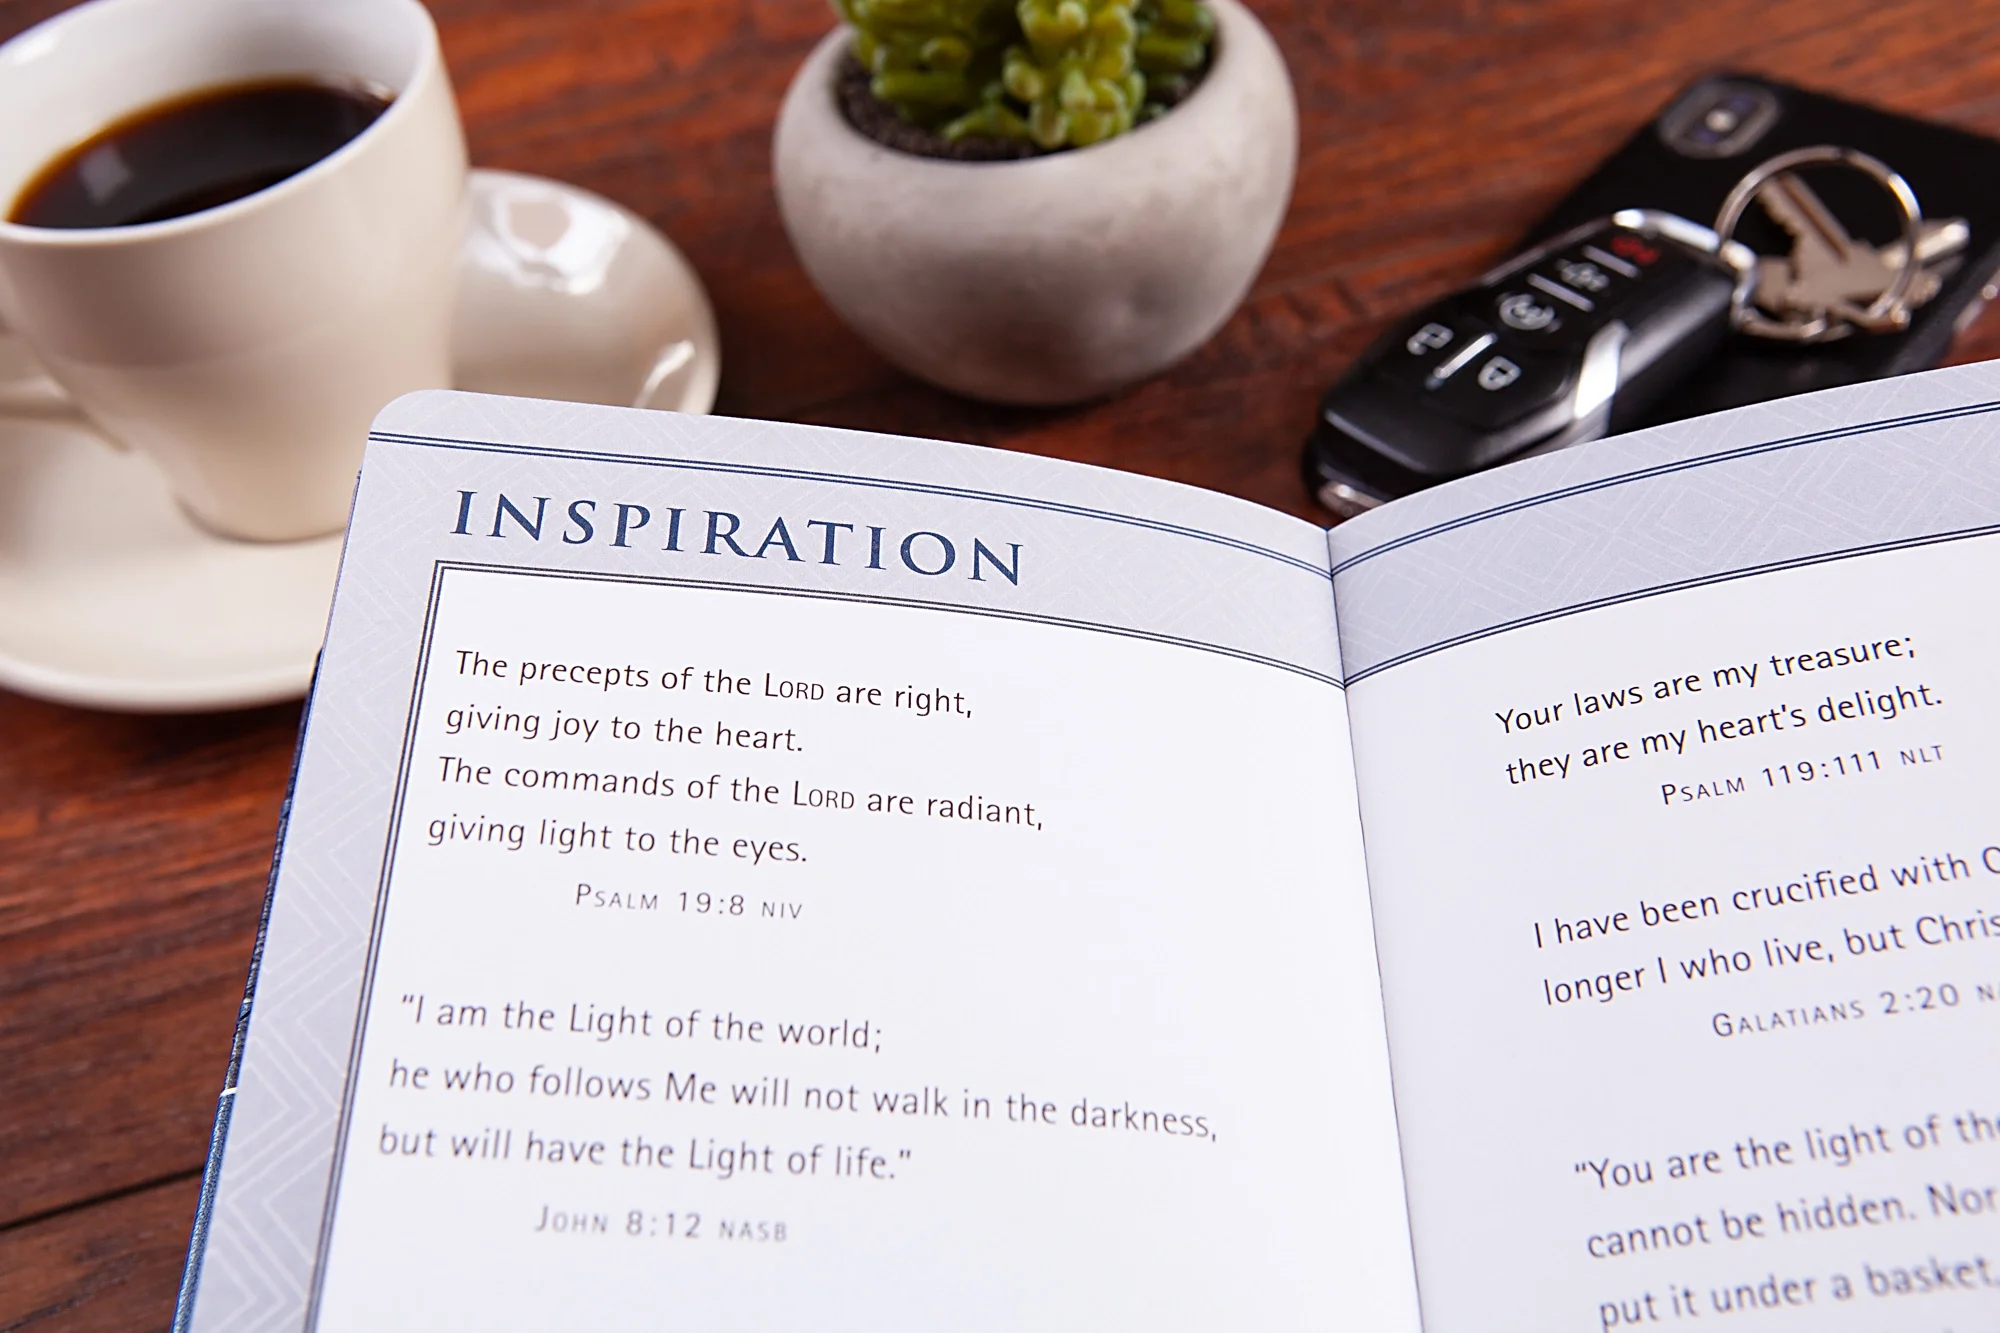 INSPIRATION
The precepts of the LORD are right,
giving joy to the heart.
The commands of the LORD are radiant,
giving light to the eyes.
PSALM 19:8 NIV
"I am the Light of the world;
he who follows Me will not walk in the darkness,
but will have the Light of life."
JOHN 8:12 NASB
Your laws are my treasure;
they are my heart's delight.
PSALM 119:111 NLT
I have been crucified with
longer I who live, but
GALATIANS 2:20
"You are the light of the
cannot be hidden. Nor
put it under a basket,